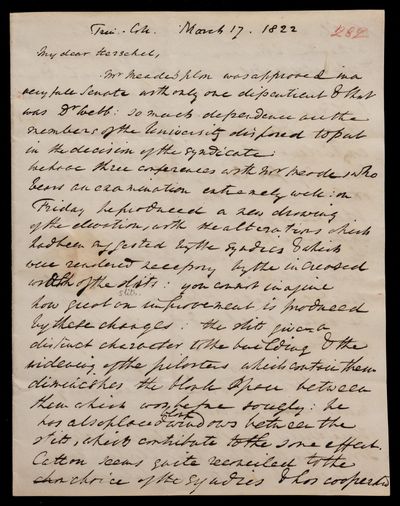 Trin. Coll. March 17. 1822
My dear Herschel,
Mr Meade's plan was approved in a
very full Senate with only one dissentient & that
was Dr Webb: so much dependence are the
members of the University disposed to put
in the decision of the Syndicate:
We have three conferences with Mr Meade, who
bears an examination extremely well: on
Friday he produced a new drawing
of the elevation, with the alterations which
had been suggested by the Syndics & which
were rendered necessary by the increased
width of the slits: you cannot imagine
slits
how great an improvement is produced
by these changes: the slits give a
distinct character to the building & the
widening of the pilasters which contain them
diminishes the blank space between
them which was before so ugly: he
has also placed blank windows between the
slits, which contribute to the same effect.
Catton seems quite reconciled to the
choice of the Syndics & has cooperated